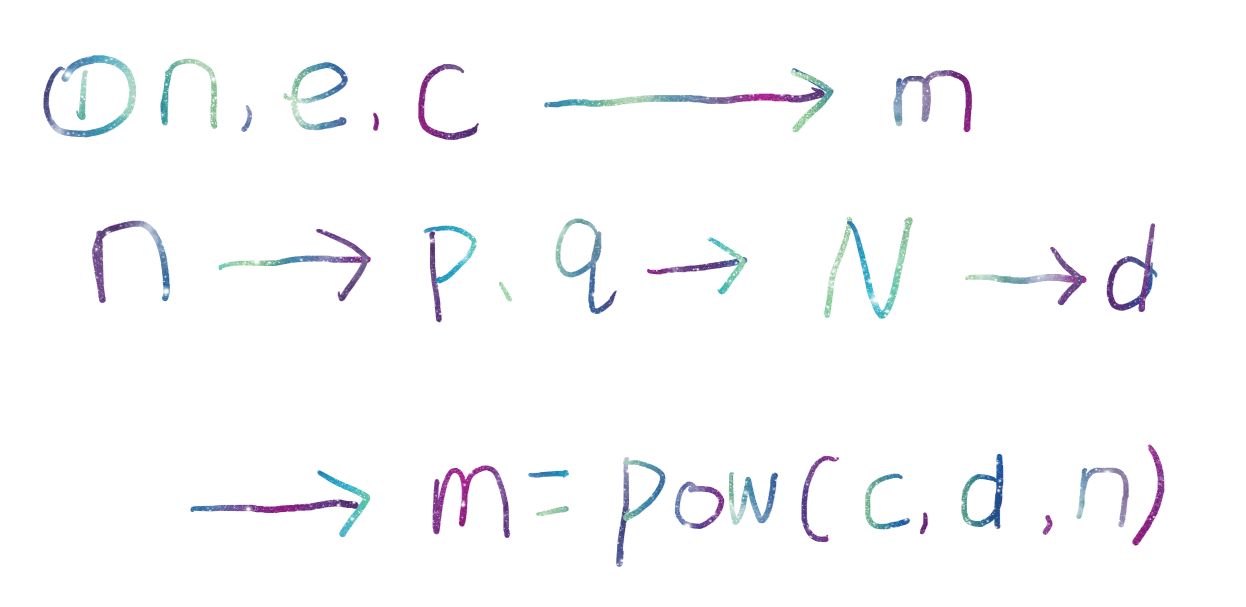 ① n, e, c → m
n → p, q → N → d
→ m = pow(c, d, n)